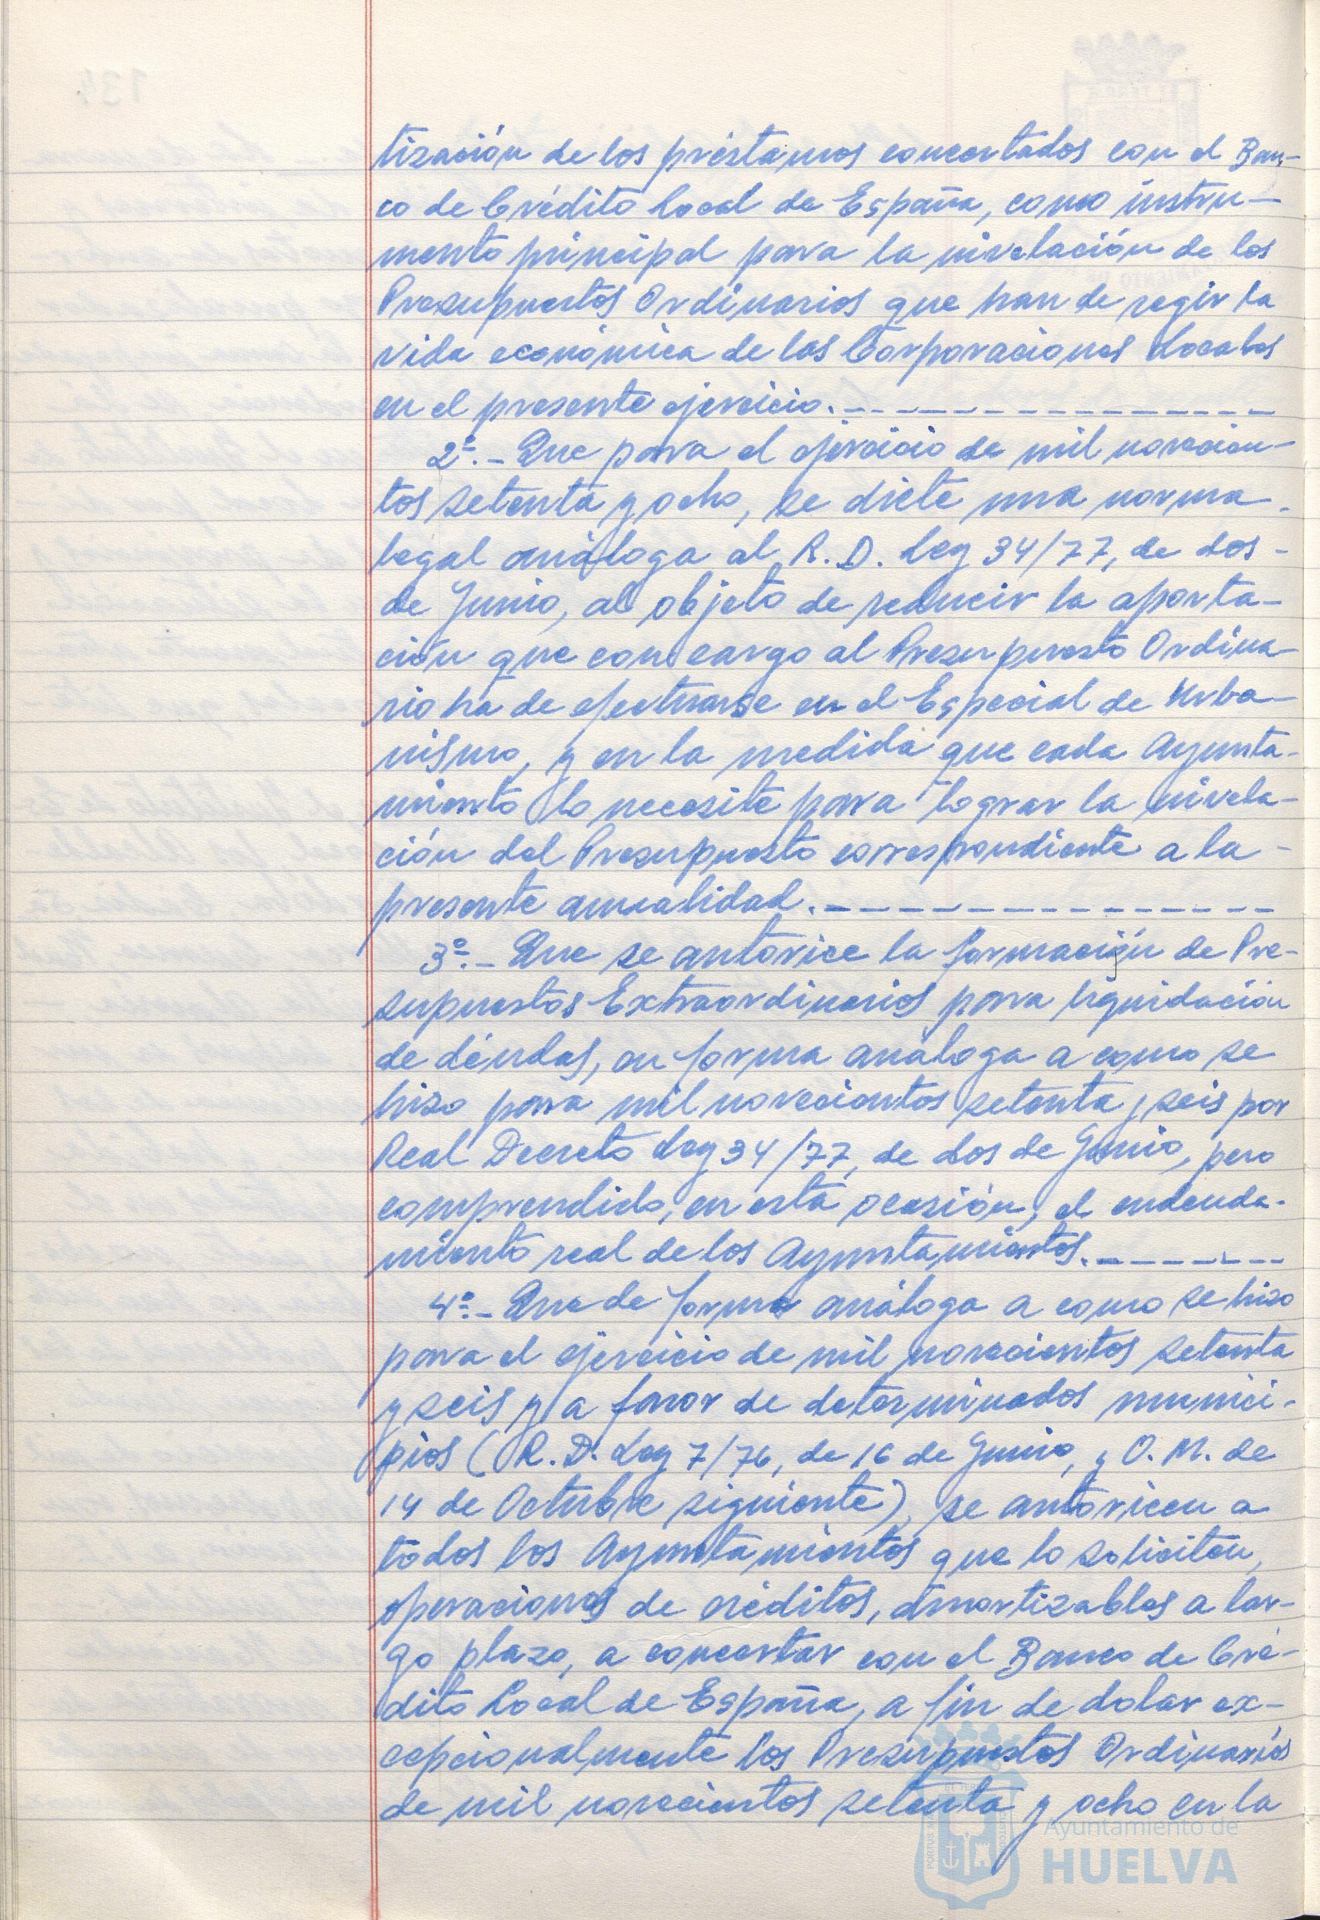 tización de los préstamos concertados con el Ban-
co de Crédito Local de España, como instru-
mento principal para la nivelación de los
Presupuestos Ordinarios que han de regir la
vida económica de las Corporaciones Locales
en el presente ejercicio.-----------
2º.- Que para el ejercicio de mil novecien-
tos setenta y ocho, se dicte una norma
legal análoga al R. D. Ley 34/77, de dos-
de Junio, al objeto de reducir la aporta-
ción que con cargo al Presupuesto Ordina-
rio ha de efectuarse en el Especial de Urba-
nismo, y en la medida que cada Ayunta-
miento lo necesite para lograr la nivela-
ción del Presupuesto correspondiente a la-
presente anualidad.-------------
3º.- Que se autorice la formación de Pre-
supuestos Extraordinarios para liquidación
de déudas, en forma análoga a como se
hizo para mil novecientos setenta y seis por
Real Decreto Ley 34/77, de dos de Junio, pero
comprendido, en esta ocasión, el endeuda-
miento real de los Ayuntamientos.------
4º.- Que de forma análoga a como se hizo
para el ejercicio de mil novecientos setenta
y seis y a favor de determinados munici-
pios (R. D. Ley 7/76, de 16 de Junio, y O. M. de
14 de Octubre siguiente), se autoricen a
todos los Ayuntamientos que lo soliciten,
operaciones de créditos, amortizables a lar-
go plazo, a concertar con el Banco de Cré-
dito Local de España, a fin de dotar ex-
cepcionalmente los Presupuestos Ordinarios
de mil novecientos setenta y ocho en la
Ayuntamiento de
HUELVA